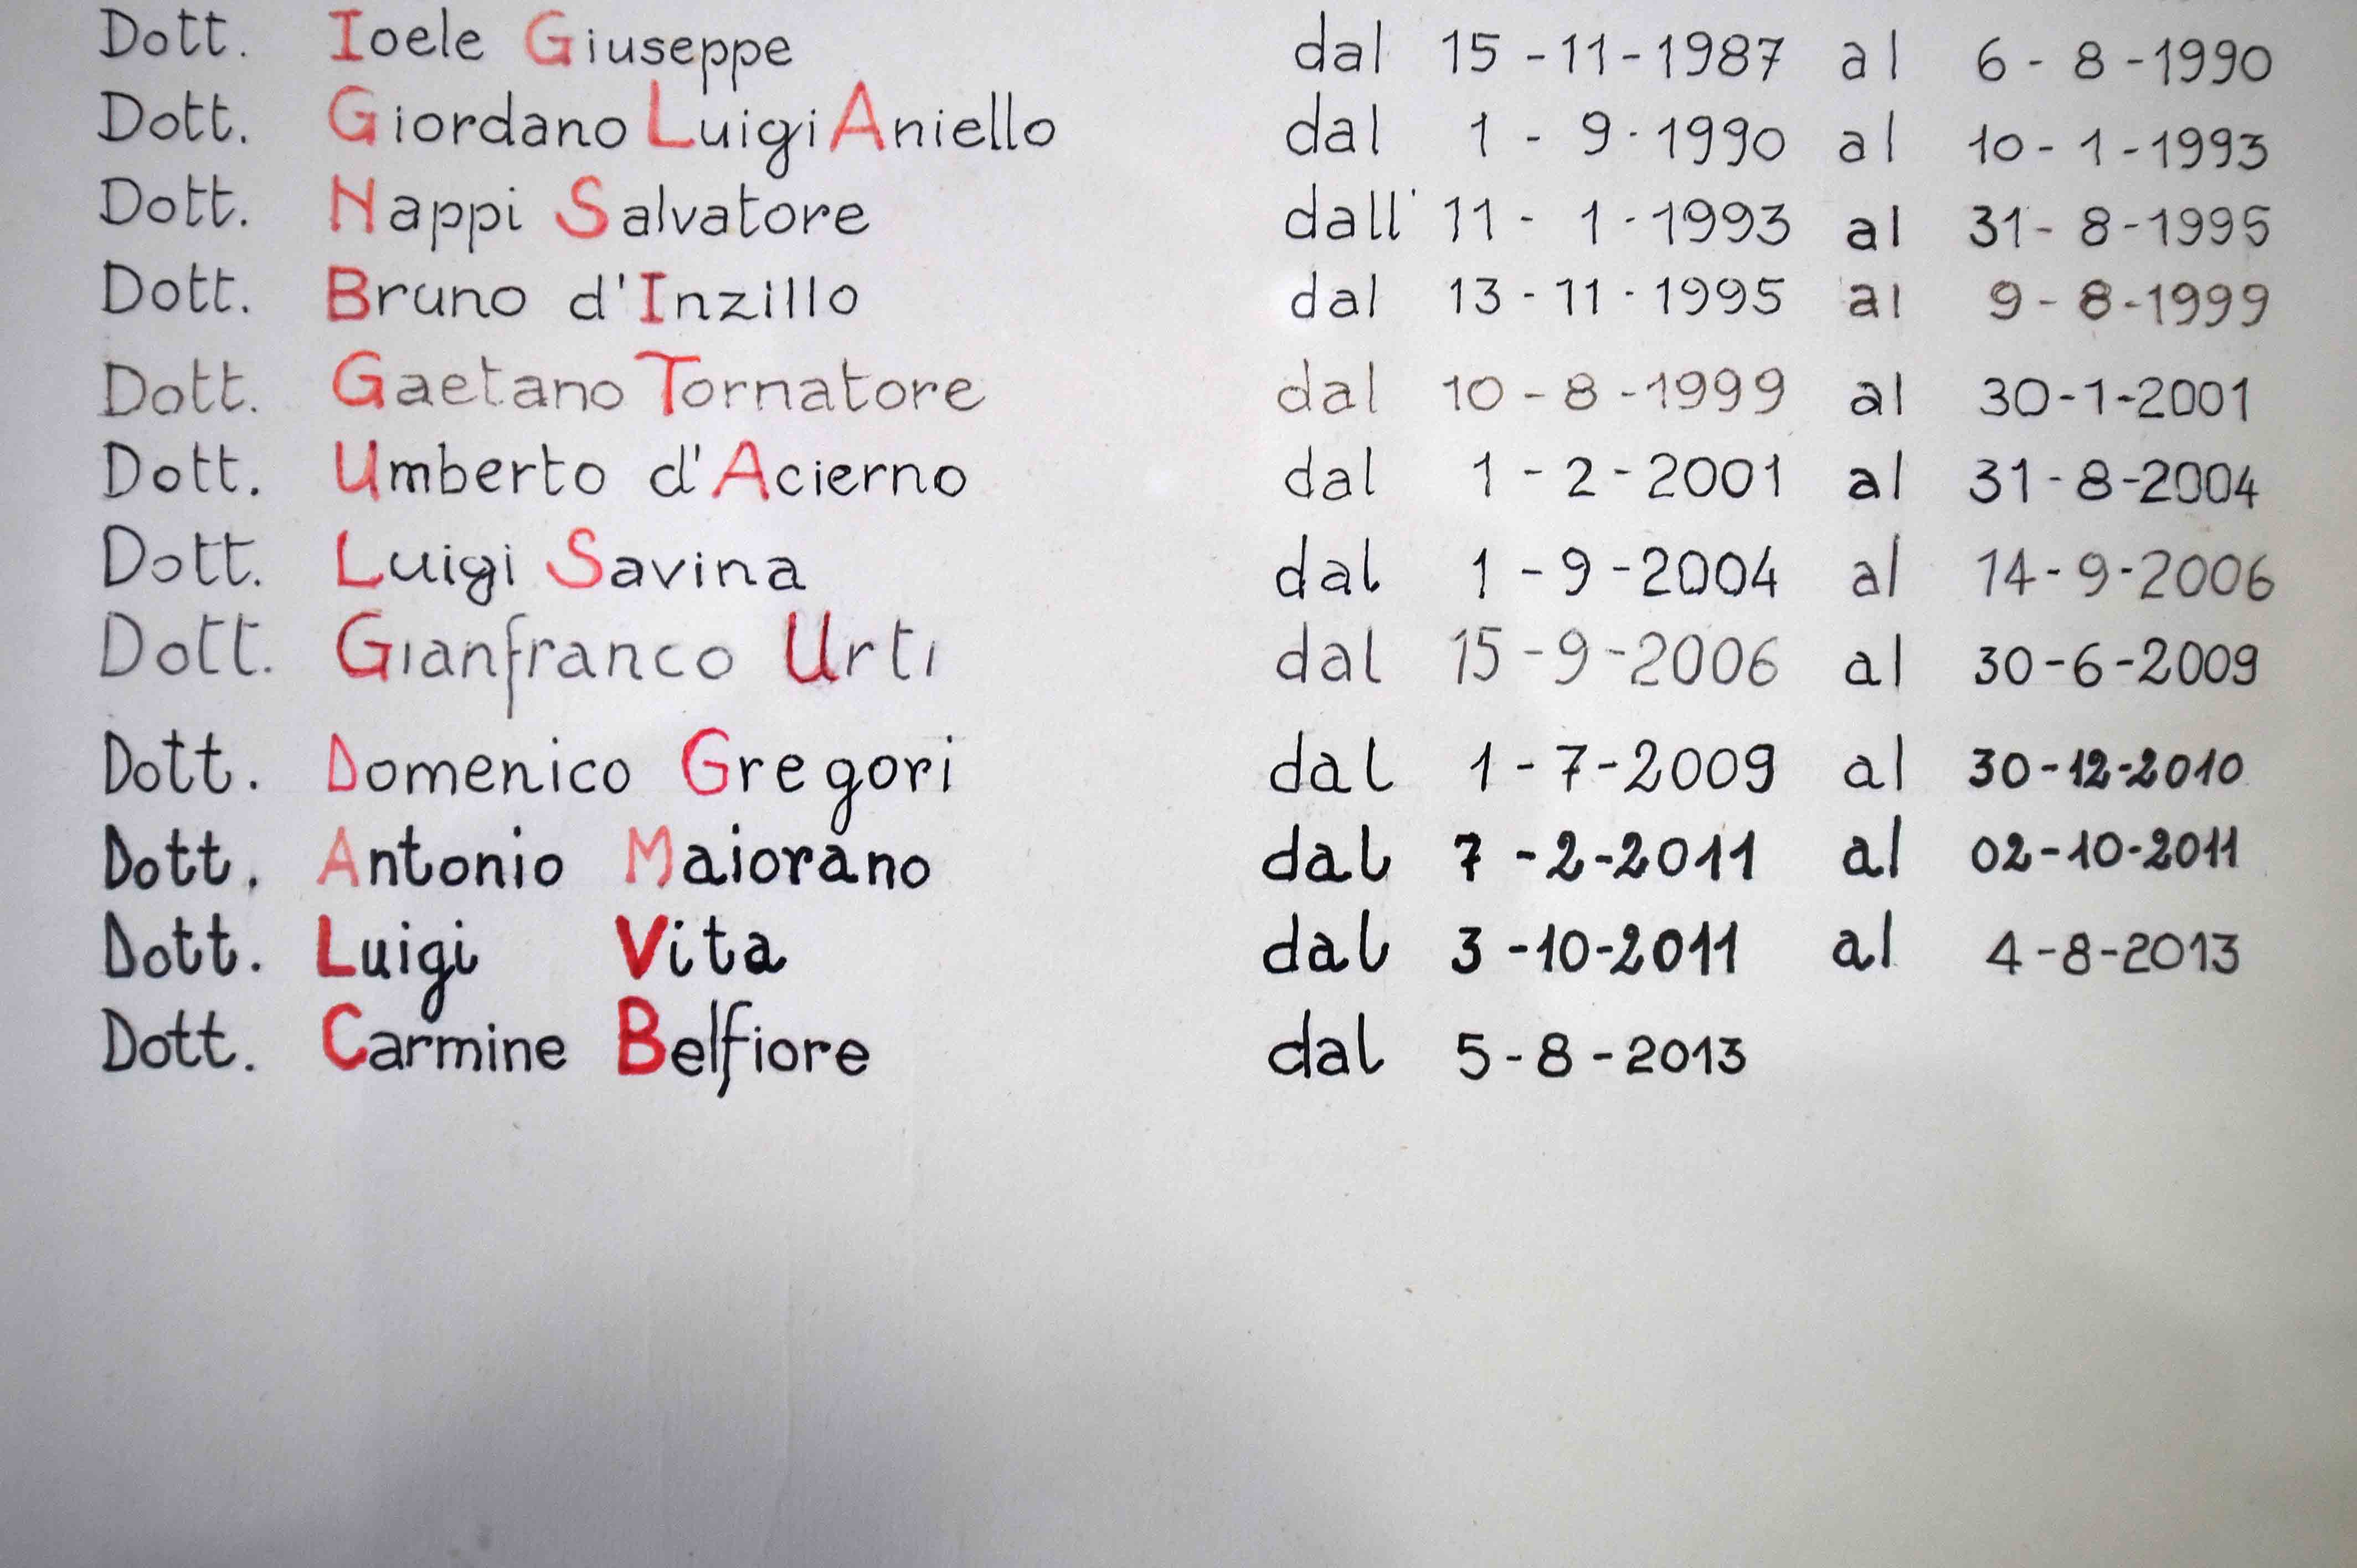 Dott. Ioele Giuseppe dal 15-11-1987 al 6-8-1990
Dott. Giordano Luigi Aniello dal 1-9-1990 al 10-1-1993
Dott. Nappi Salvatore dall' 11-1-1993 al 31-8-1995
Dott. Bruno d'Inzillo dal 13-11-1995 al 9-8-1999
Dott. Gaetano Tornatore dal 10-8-1999 al 30-1-2001
Dott. Umberto d'Acierno dal 1-2-2001 al 31-8-2004
Dott. Luigi Savina dal 1-9-2004 al 14-9-2006
Dott. Gianfranco Urti dal 15-9-2006 al 30-6-2009
Dott. Domenico Gregori dal 1-7-2009 al 30-12-2010
Dott. Antonio Maiorano dal 7-2-2011 al 02-10-2011
Dott. Luigi Vita dal 3-10-2011 al 4-8-2013
Dott. Carmine Belfiore dal 5-8-2013